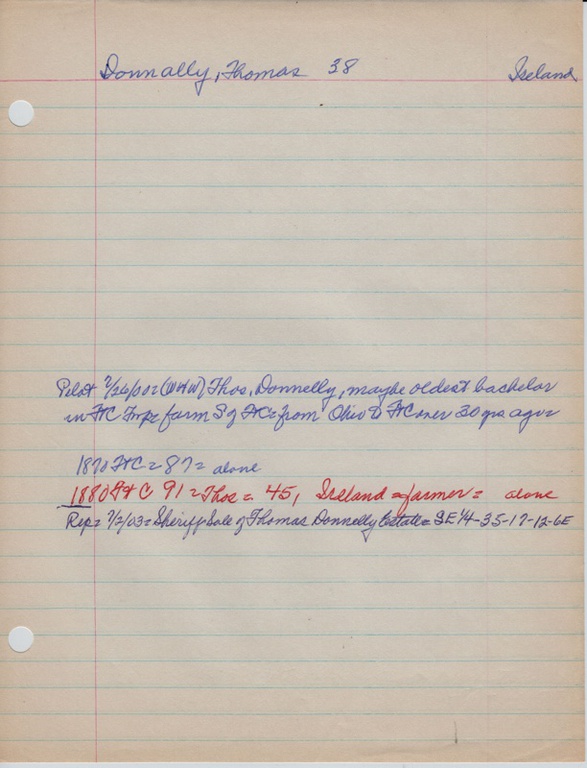 Donnally, Thomas 38 Ireland
Pilot 7/26/00= (W&W) Thos. Donnelly, maybe oldest bachelor
in FtC Twp= farm S of FtC= from Ohio to FtC over 30 yrs ago=
1870 FtC= 87= alone
1880 FtC 91= Thos= 45, Ireland= farmer= alone
Rep= 7/2/03= Sheriff Sale of Thomas Donnelly Estate= SE 1/4-35-17-12-6E